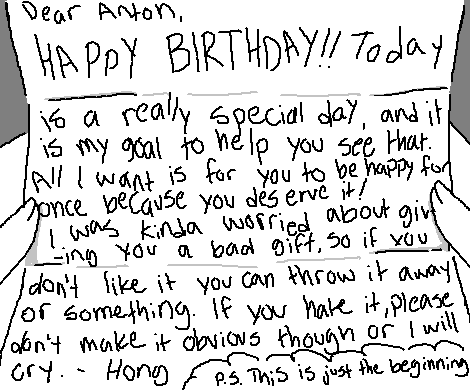 Dear Anton,
HAPPY BIRTHDAY!! Today
is a really special day, and it
is my goal to help you see that.
All I want is for you to be happy for
once because you deserve it!
I was kinda worried about giv
-ing you a bad gift, so if you
don't like it you can throw it away
or something. If you hate it, please
don't make it obvious though or I will
cry. - Hong
P.S. This is just the beginning